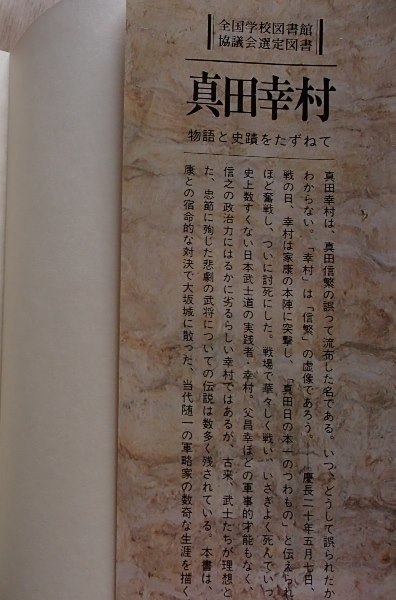 全国学校図書館
協議会選定図書
真田幸村
物語と史蹟をたずねて
真田幸村は、真田信繁の誤って流布した名である。いつ、どうして誤られたか
わからない。「幸村」は「信繁」の虚像であろう。 慶長二十年五月七日、
戦の日、幸村は家康の本陣に突撃し、「真田日の本一のつわもの」と伝えられ
ほど奮戦し、ついに討死にした。戦場で華々しく戦い、いさぎよく死んでいっ
史上数すくない日本武士道の実践者・幸村。父昌幸ほどの軍事的才能もなく、
信之の政治力にはるかに劣るらしい幸村ではあるが、古来、武士たちが理想と
た、忠節に殉じた悲劇の武将についての伝説は数多く残されている。本書は、
康との宿命的な対決で大坂城に散った、当代随一の軍略家の数奇な生涯を描く